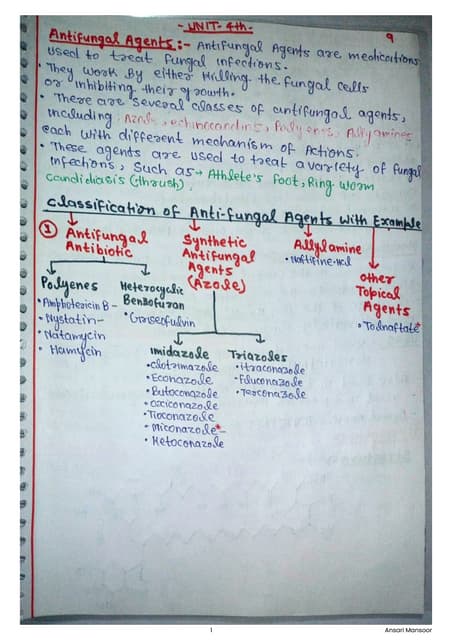 - UNIT- 4th -
9
Antifungal Agents :- Antifungal Agents are medications
used to treat fungal infections.
• They work By either Killing the fungal cells
or inhibiting their growth.
• There are several classes of antifungal agents,
including Azole, echinocandins, Polyenes, Allylamines
each with different mechanism of Actions.
• These agents are used to treat a variety of fungal
infections, Such as → Athlete's foot, Ring worm
candidiasis (thrush)
classification of Anti-fungal Agents with Example
① Antifungal
Antibiotic
Synthetic
Antifungal
Agents
(Azole)
Allylamine
• Naftifine.Hcl
other
Topical
Agents
• Tolnaftate*
Polyenes
• Amphotericin B -
• Nystatin -
• Natamycin
• Hamycin
Heterocyclic
Benzofuran
• Griseofulvin
imidazole
• Clotrimazole
• Econazole
• Butoconazole
• Oxiconazole
• Tioconazole
• Miconazole* -
• Ketoconazole
Triazoles
• itraconazole
• Fluconazole
• Terconazole
1
Ansari Mansoor